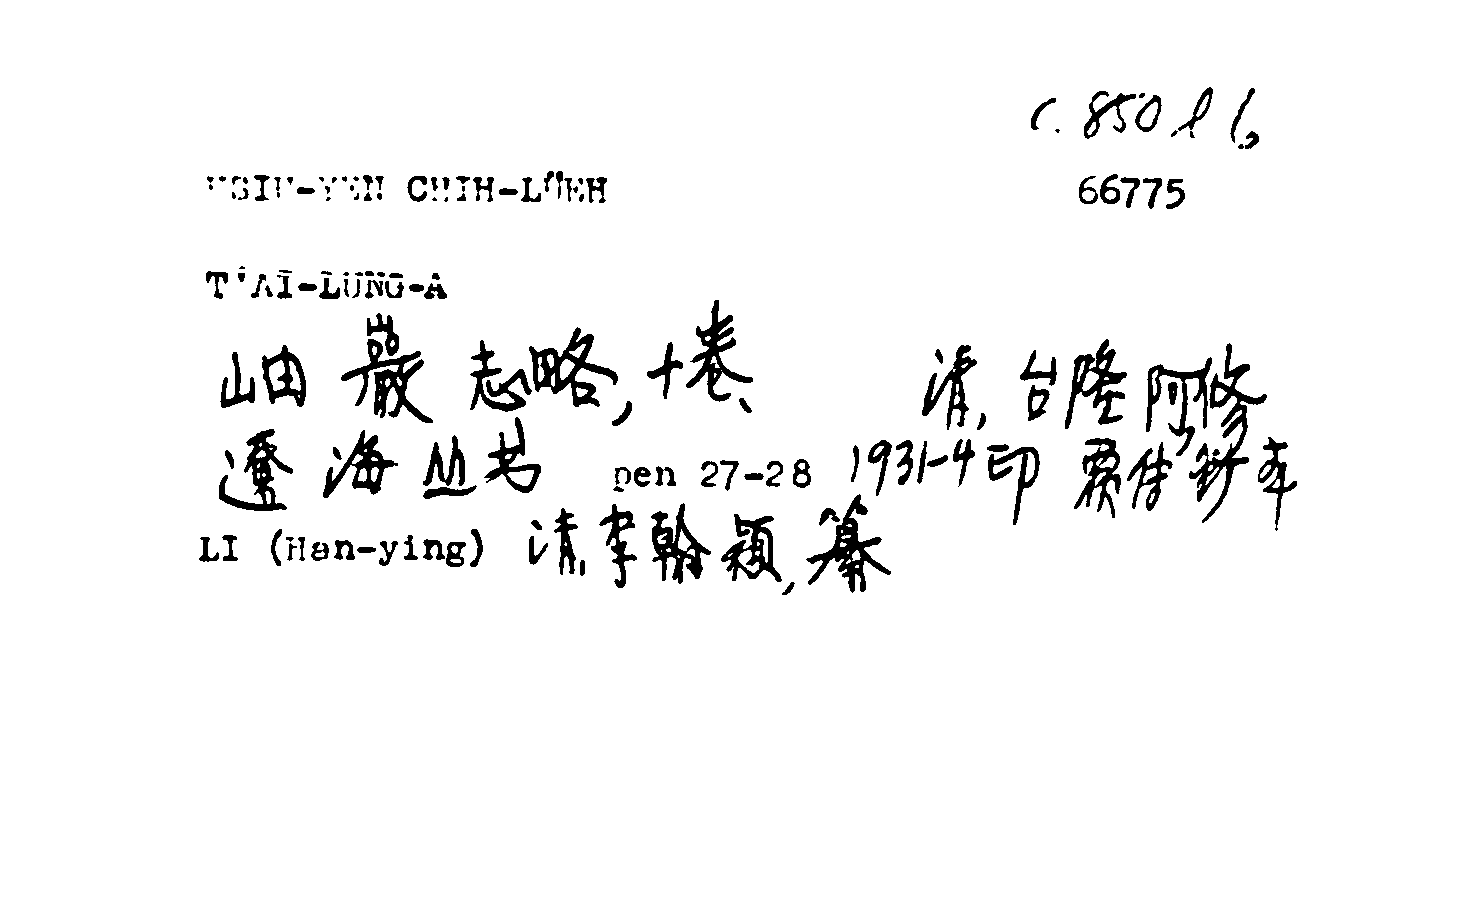 C. 850 l 6
HSIU-YEN CHIH-LÜEH 66775
T'AI-LUNG-A
岫巖志略, 十卷、 清, 台隆阿修
遼海丛书 pen 27-28 1931-4 印 鈔本
LI (Han-ying) 清, 李翰颖, 纂